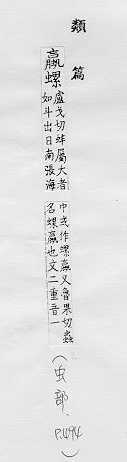 類篇
蠃螺
盧戈切蚌屬大者
如斗出日南張海
中或作螺蠃又魯果切蟲
名蜾蠃也文二重音一
(虫部 P.494)